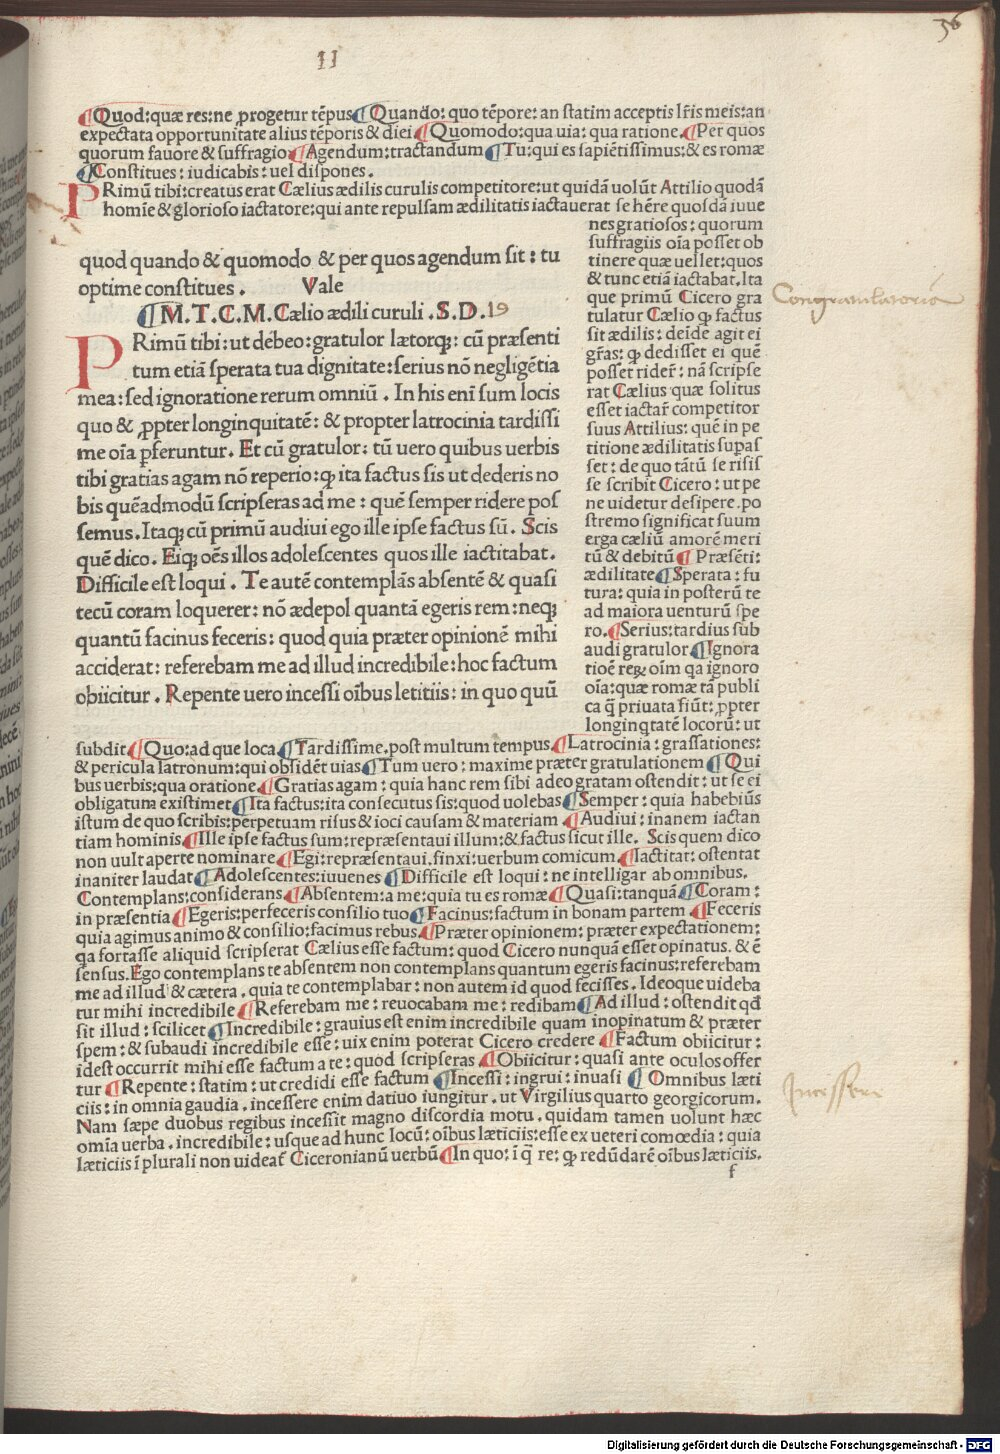 36
II
¶Quod:quæ res:ne ꝓgetur tẽpus¶Quando: quo tẽpore: an statim acceptis lr̃is meis:an
expectata opportunitate alius tẽporis & diei¶Quomodo:qua uia: qua ratione.¶Per quos
quorum fauore & suffragio¶Agendum:tractandum¶Tu:qui es sapiẽtissimus:& es romæ
¶Constitues: iudicabis: uel dispones.
PRimũ tibi:creatus erat Cælius ædilis curulis competitore:ut quidã uolũt Attilio quodã
homĩe & glorioso iactatore:qui ante repulsam ædilitatis iactauerat se hẽre quosdã iuue
nes gratiosos: quorum
suffragiis oĩa posset ob
tinere quæ uellet:quos
& tunc etiã iactabat. Ita
que primũ Cicero gra
tulatur Cælio ꝙ factus
sit ædilis: deĩde agit ei
gr̃as: ꝙ dedisset ei quẽ
posset rider̃: nã scripse
rat Cælius quæ solitus
esset iactar̃ competitor
suus Attilius: quẽ in pe
titione ædilitatis supas
set: de quo tãtũ se risis
se scribit Cicero: ut pe
ne uidetur desipere. po
stremo significat suum
erga cæliũ amorẽ meri
tũ & debitũ¶ Præsẽti:
ædilitate¶Sperata: fu
tura: quia in posterũ te
ad maiora uenturũ spe
ro.¶Serius:tardius sub
audi gratulor¶Ignora
tioẽ reꝝ oĩm qa ignoro
oĩa:quæ romæ tã publi
ca q̃ priuata fiũt: ꝓpter
longinqtatẽ locorũ: ut
quod quando & quomodo & per quos agendum sit: tu
optime constitues. Vale
¶M.T.C.M.Cælio ædili curuli .S.D.19
PRimũ tibi: ut debeo: gratulor lætorqꝫ: cũ præsenti
tum etiã sperata tua dignitate: serius nõ negligẽtia
mea: sed ignoratione rerum omniũ . In his enĩ sum locis
quo & ꝓpter longinquitatẽ: & propter latrocinia tardissi
me oĩa ꝑferuntur. Et cũ gratulor: tũ uero quibus uerbis
tibi gratias agam nõ reperio:ꝙ ita factus sis ut dederis no
bis quẽadmodũ scripseras ad me : quẽ semper ridere pos
semus. Itaqꝫ cũ primũ audiui ego ille ipse factus sũ. Scis
quẽ dico. Eiqꝫ oẽs illos adolescentes quos ille iactitabat.
Difficile est loqui . Te autẽ contemplãs absentẽ & quasi
tecũ coram loquerer: nõ ædepol quantã egeris rem: neqꝫ
quantũ facinus feceris: quod quia præter opinionẽ mihi
acciderat: referebam me ad illud incredibile: hoc factum
obiicitur . Repente uero incessi oĩbus letitiis: in quo quũ
subdit¶Quo:ad que loca¶Tardissime.post multum tempus¶Latrocinia: grassationes:
& pericula latronum:qui obsidẽt uias¶Tum uero: maxime præter gratulationem¶Qui
bus uerbis:qua oratione¶Gratias agam: quia hanc rem sibi adeo gratam ostendit: ut se ei
obligatum existimet¶Ita factus:ita consecutus sis:quod uolebas¶Semper: quia habebiũs
istum de quo scribis:perpetuam risus & ioci causam & materiam ¶Audiui: inanem iactan
tiam hominis¶Ille ipse factus sum:repræsentaui illum:& factus sicut ille. Scis quem dico
non uult aperte nominare¶Egi:repræsentaui.finxi:uerbum comicum¶Iactitat: ostentat
inaniter laudat¶Adolescentes:iuuenes¶Difficile est loqui: ne intelligar ab omnibus.
Contemplans:considerans¶Absentem:a me:quia tu es romæ¶Quasi:tanquã¶Coram:
in præsentia¶Egeris:perfeceris consilio tuo¶Facinus:factum in bonam partem ¶Feceris
quia agimus animo & consilio:facimus rebus¶Præter opinionem: præter expectationem:
qa fortasse aliquid scripserat Cælius esse factum: quod Cicero nunquã esset opinatus. & ẽ
sensus. Ego contemplans te absentem non contemplans quantum egeris facinus:referebam
me ad illud & cætera. quia te contemplabar: non autem id quod fecisses. Ideoque uideba
tur mihi incredibile ¶Referebam me: reuocabam me: redibam¶Ad illud: ostendit qd
sit illud: scilicet¶Incredibile: grauius est enim incredibile quam inopinatum & præter
spem: & subaudi incredibile esse: uix enim poterat Cicero credere¶Factum obiicitur:
idest occurrit mihi esse factum a te: quod scripseras¶Obiicitur: quasi ante oculos offer
tur ¶Repente: statim: ut credidi esse factum ¶Incessi: ingrui: inuasi ¶ Omnibus læti
ciis: in omnia gaudia. incessere enim datiuo iungitur. ut Virgilius quarto georgicorum.
Nam sæpe duobus regibus incessit magno discordia motu. quidam tamen uolunt hæc
omĩa uerba. incredibile: usque ad hunc locũ: oĩbus læticiis:esse ex ueteri comœdia: quia
læticiis ĩ plurali non uideat̃ Ciceronianũ uerbũ¶In quo: ĩ q̃ re: ꝙ redũdarẽ oĩbus læticiis.
f
Congratulatoria
Incessere
Digitalisierung gefördert durch die Deutsche Forschungsgemeinschaft - DFG